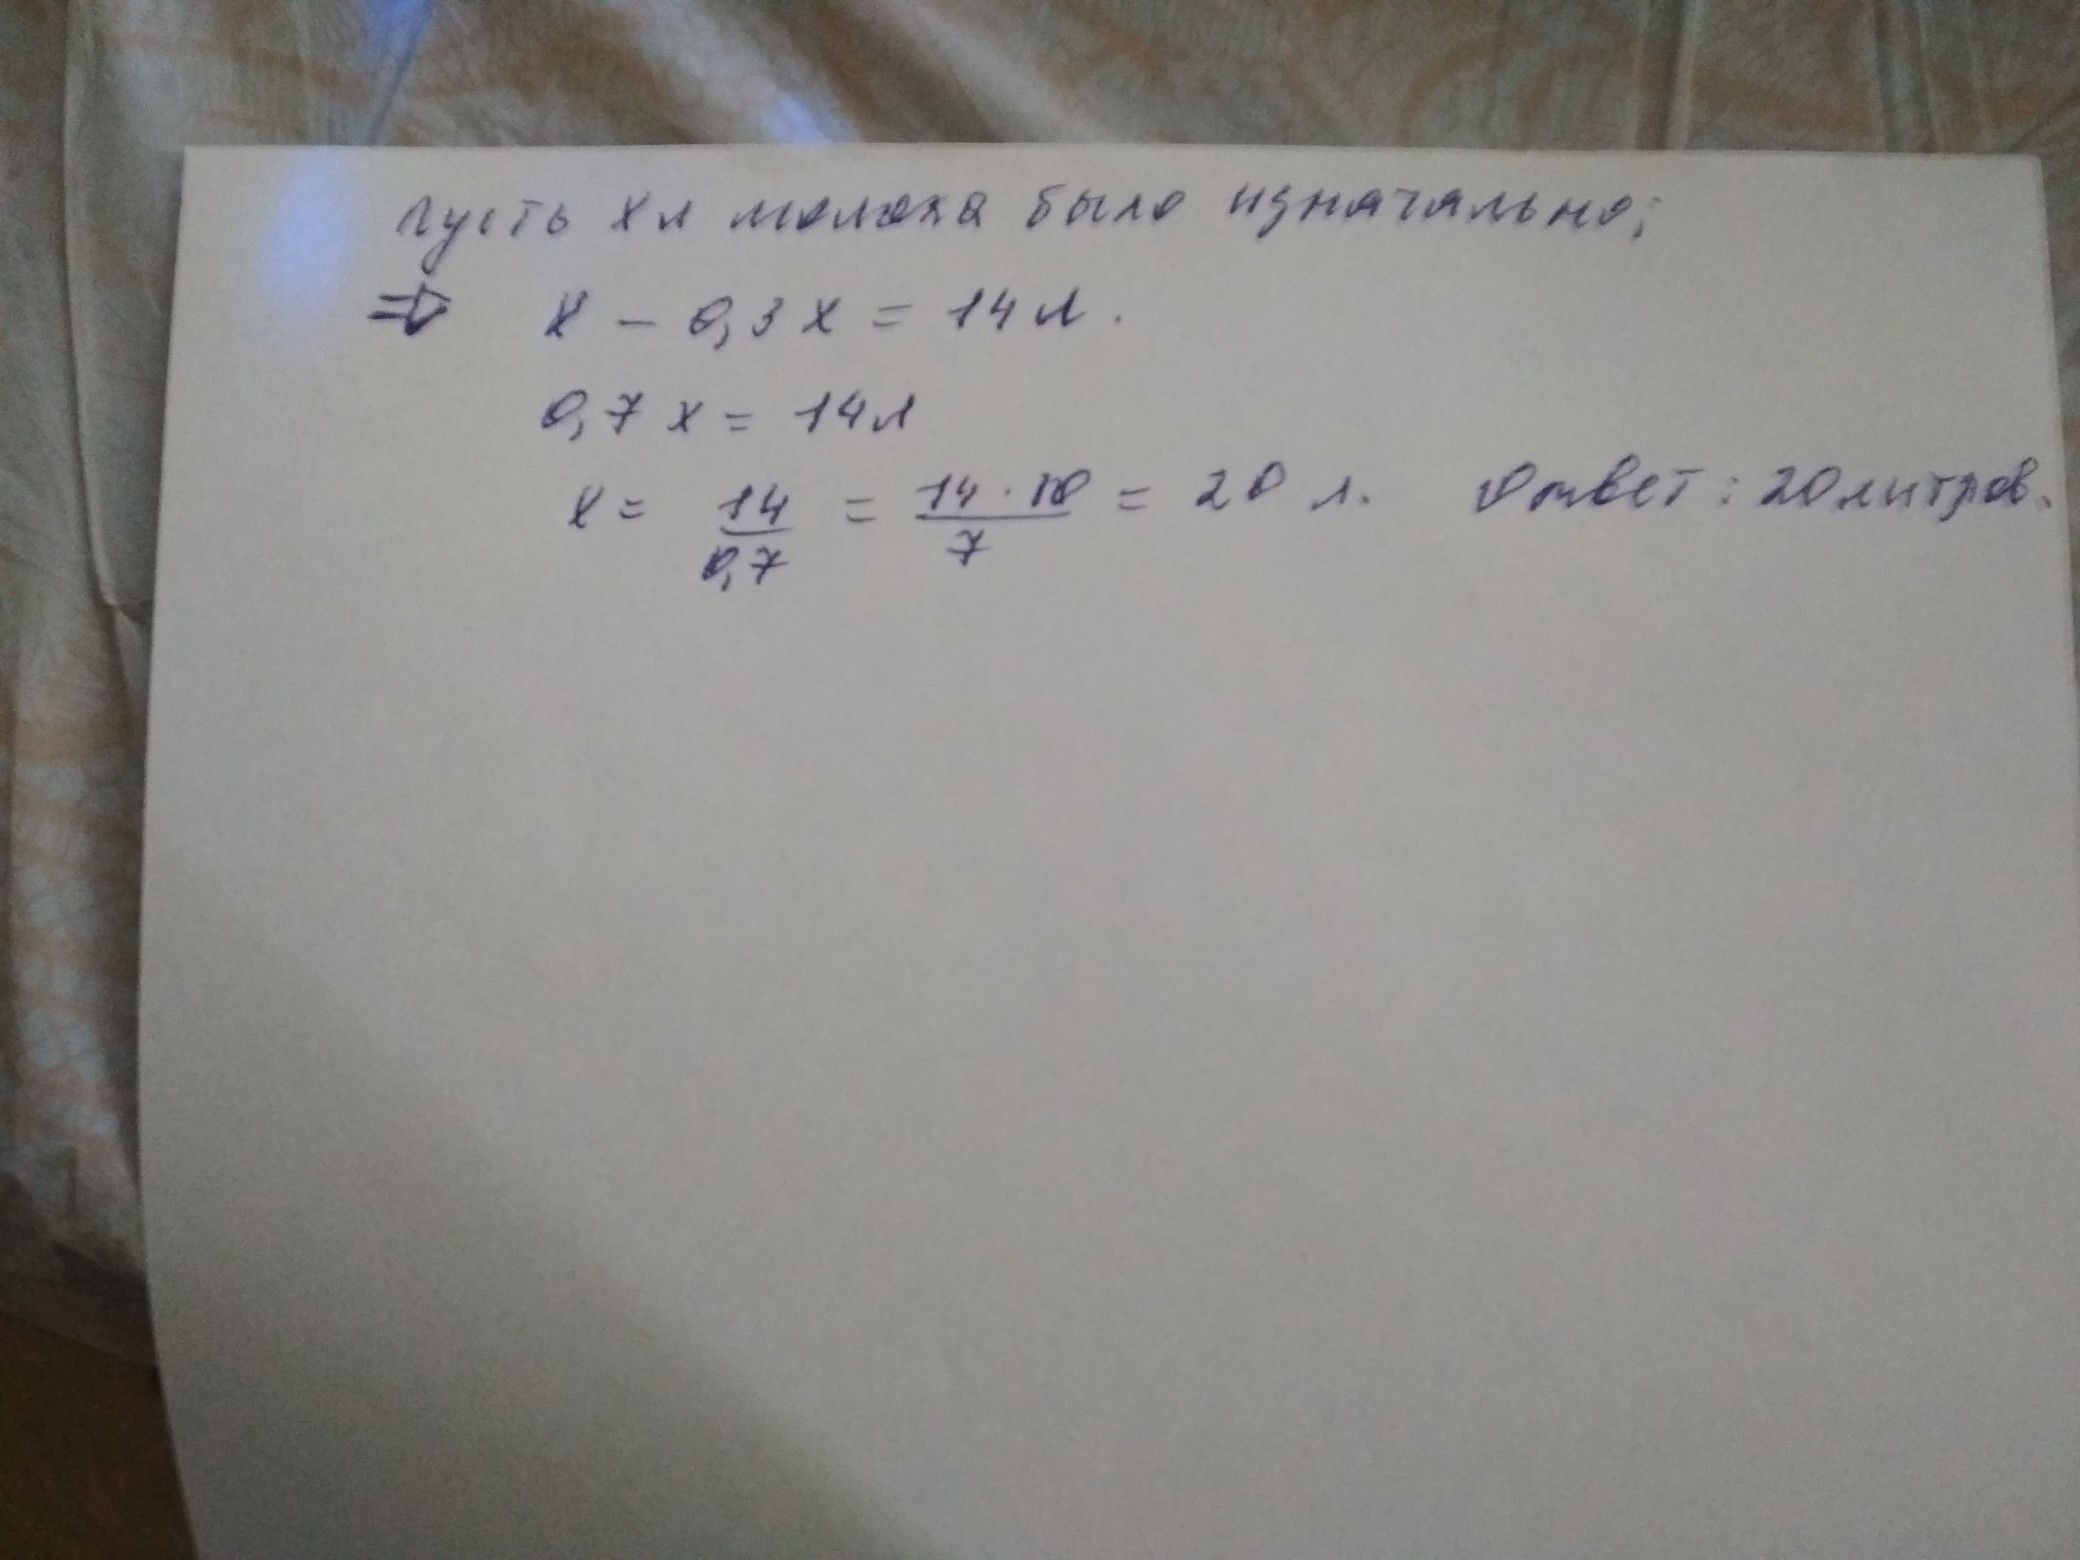 пусть х л молока было изначально;
⇒ х - 0,3 х = 14 л.
0,7 х = 14 л
х = 14/0,7 = 14 · 10/7 = 20 л. Ответ: 20 литров.